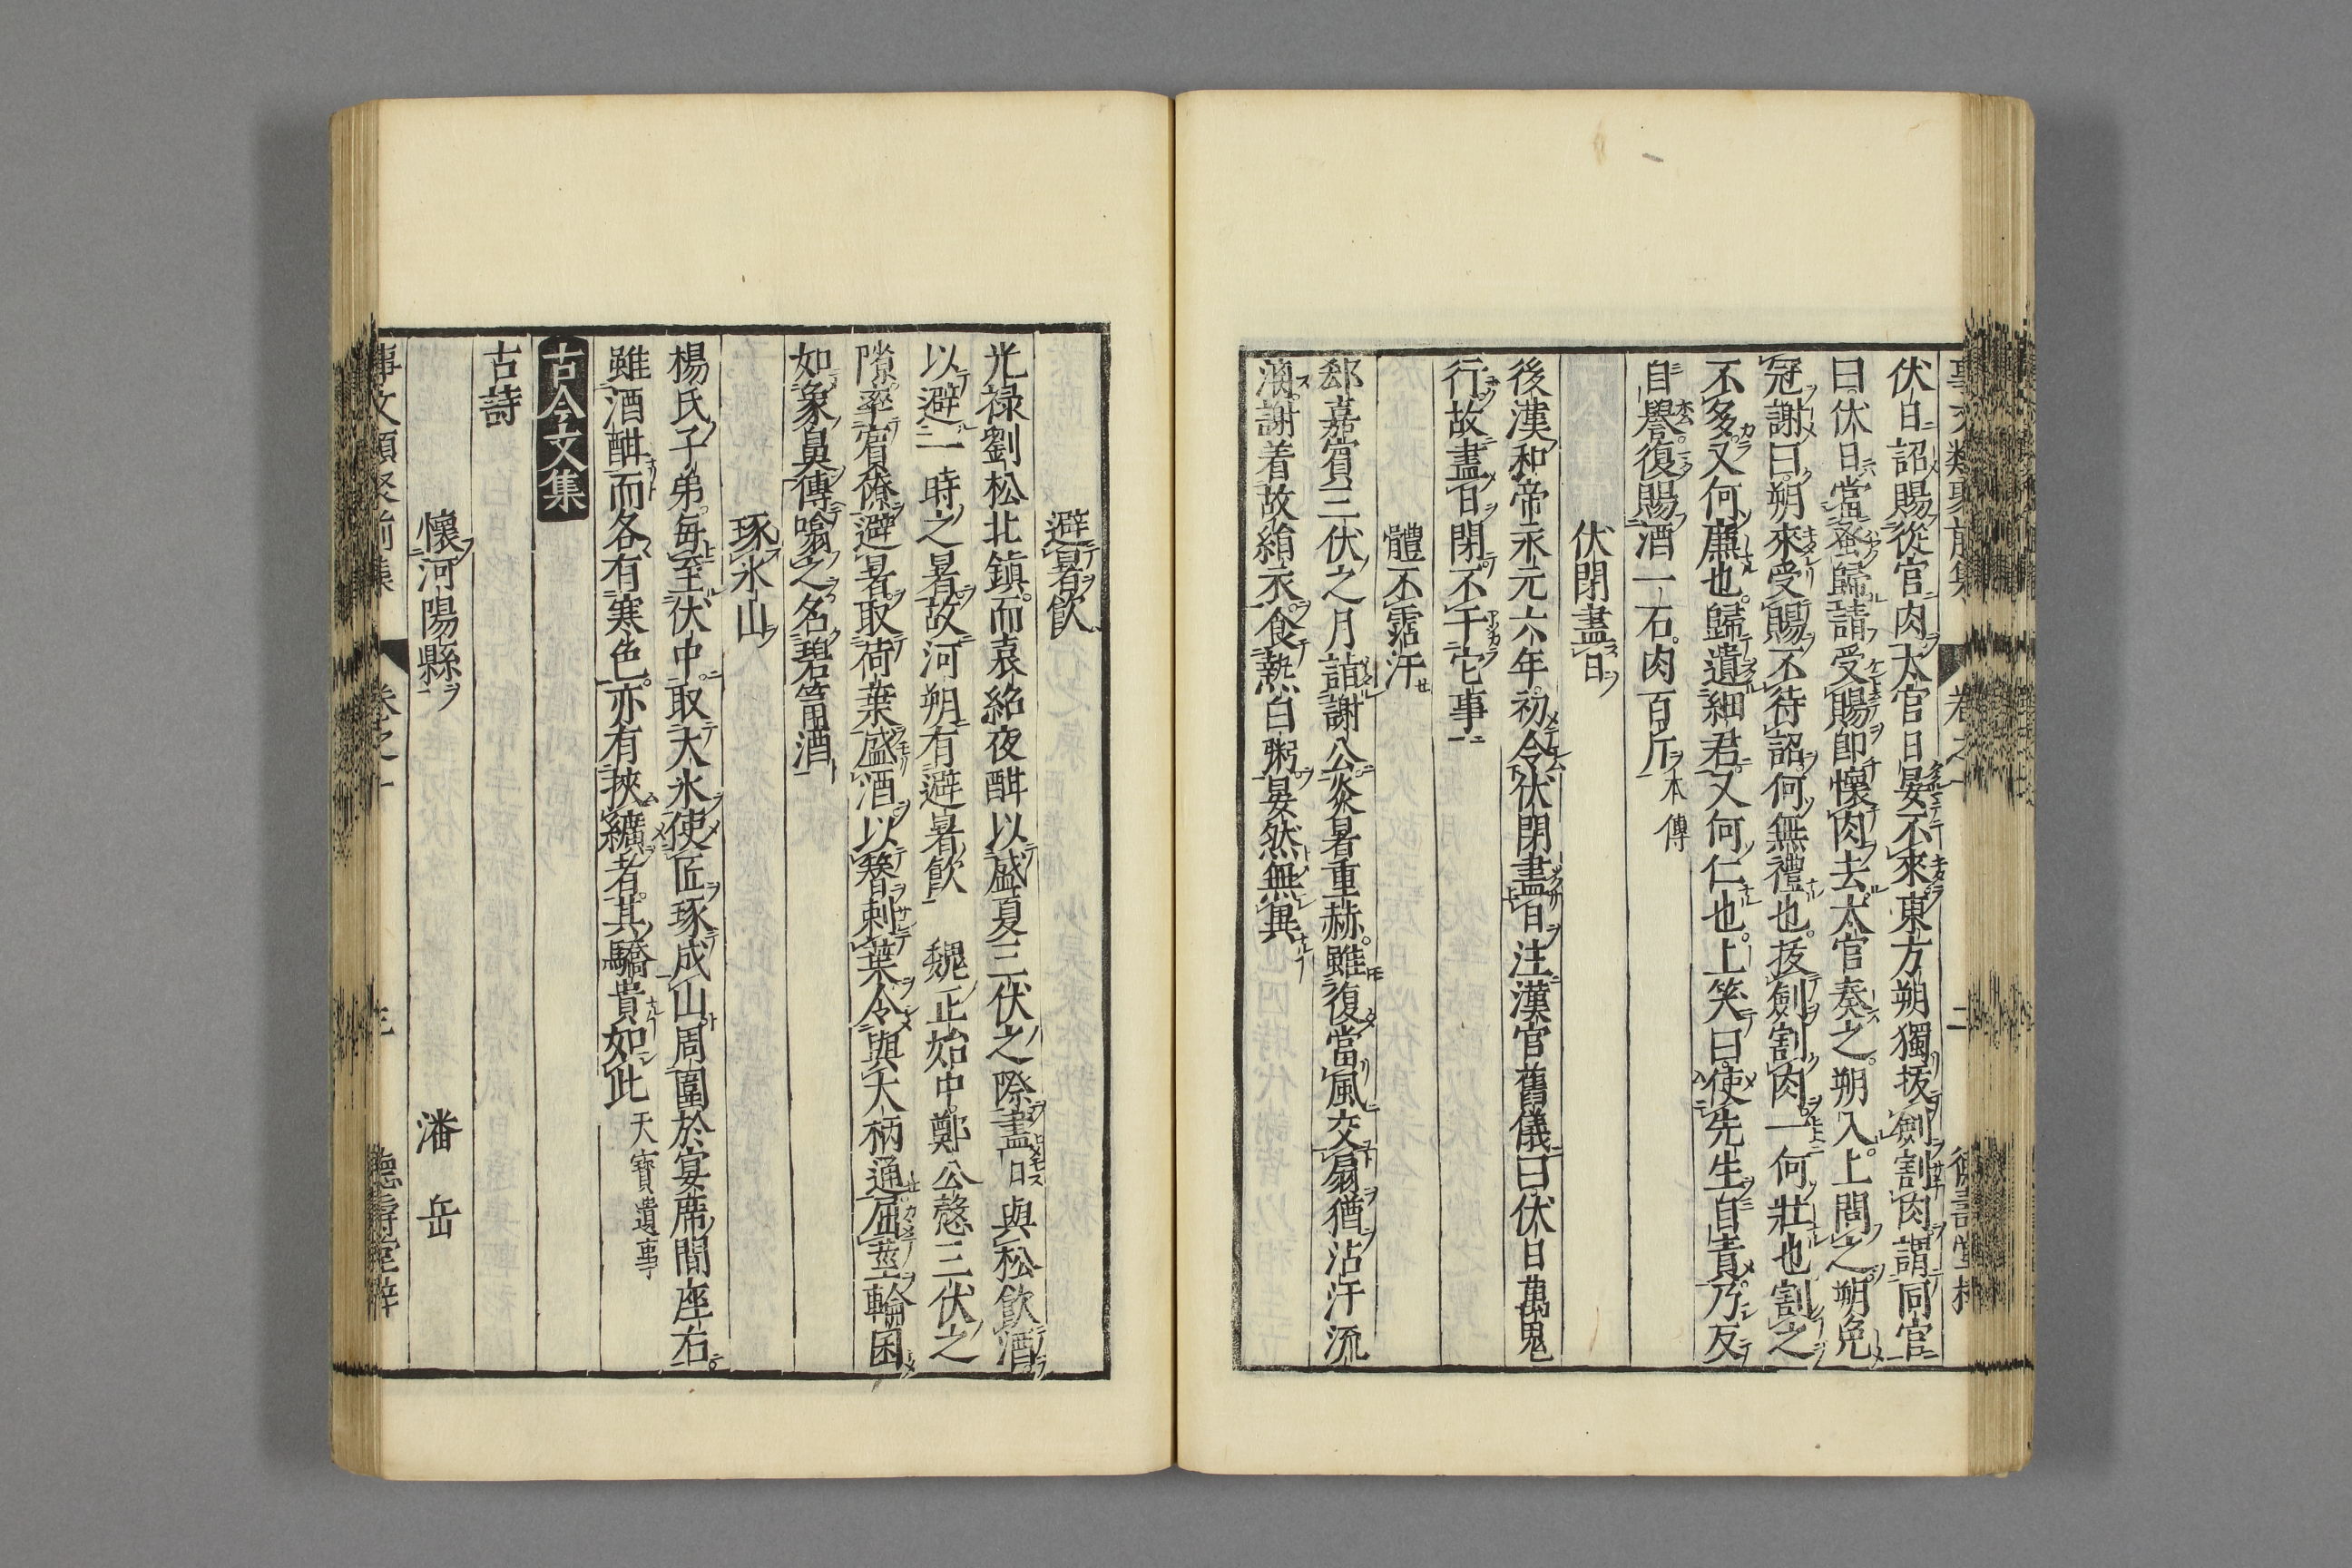 伏日詔賜從官肉太官日晏不來東方朔獨拔劍割肉謂同官
曰伏日當蚤歸請受賜卽懷肉去太官奏之朔入上問之朔免
冠謝曰朔來受賜不待詔何無禮也拔劍割肉一何壯也割之
不多又何廉也歸遺細君又何仁也上笑曰使先生自責乃反
自譽復賜酒一石肉百斤本傳
伏閉晝日
後漢和帝永元六年初令伏閉晝日注漢官舊儀曰伏日萬鬼
行故晝日閉不干它事
體不霑汗
郄嘉賓三伏之月詣謝公炎暑重赫雖復當風交扇猶沾汗流
漓謝着故絹衣食熱白粥晏然無異
避暑飲
光祿劉松北鎮而袁紹夜酣以盛夏三伏之際晝日與松飲酒
以避一時之暑故河朔有避暑飲 魏正始中鄭公愨三伏之
隙率賓僚避暑取荷葉盛酒以簪刺葉令與大柄通屈莖輪囷
如象鼻傳噏之名碧筩酒
琢氷山
楊氏子弟每至伏中取大氷使匠琢成山周圍於宴席間座右
雖酒酣而各有寒色亦有挾纊者其驕貴如此天寶遺事
古今文集
古詩
懷河陽縣 潘岳